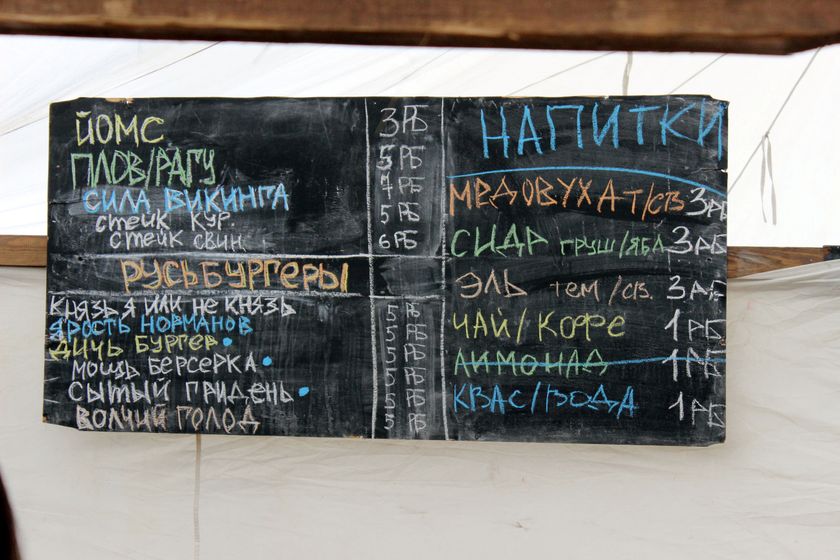 ЙОМС 3 РБ
ПЛОВ/РАГУ 5 РБ
СИЛА ВИКИНГА 7 РБ
стейк кур. 5 РБ
стейк свин. 6 РБ
РУСЬБУРГЕРЫ
КНЯЗЬ Я ИЛИ НЕ КНЯЗЬ 5 РБ
ЯРОСТЬ НОРМАНОВ 5 РБ
ДИЧЬ БУРГЕР 5 РБ
МОЩЬ БЕРСЕРКА 5 РБ
СЫТЫЙ ГРИДЕНЬ 5 РБ
ВОЛЧИЙ ГОЛОД 5 РБ
НАПИТКИ
МЕДОВУХА Т/СВ 3 РБ
СИДР ГРУШ/ЯБЛ 3 РБ
ЭЛЬ тем/св. 3 РБ
ЧАЙ/КОФЕ 1 РБ
ЛИМОНАД 1 РБ
КВАС/ВОДА 1 РБ